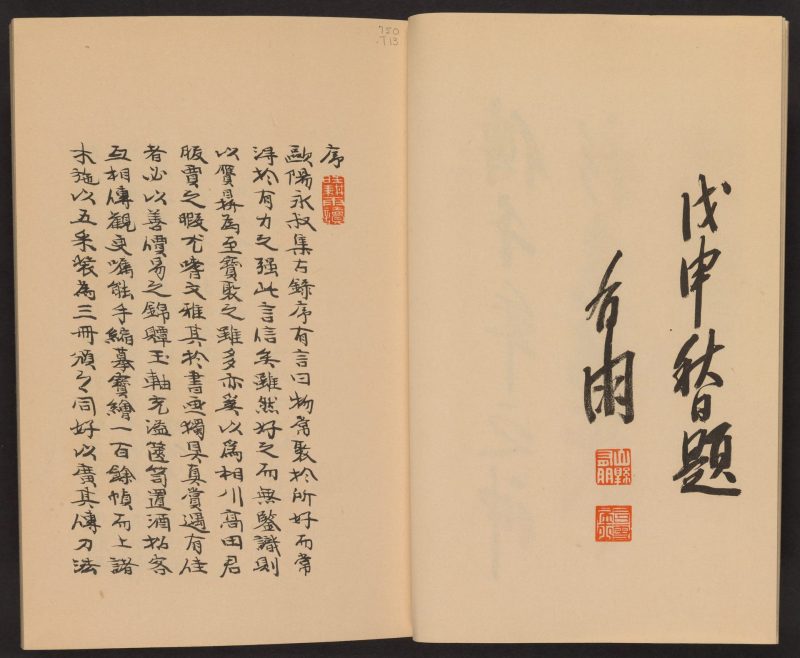 戊申秋日題
有朋
山縣有朋
750
.T13
序
歐陽永叔集古錄序有言曰物常聚於所好而常
得於有力之强此言信矣雖然好之而無鑒識則
以贋鼎為至寶聚之雖多亦奚以爲相川高田君
販賣之暇尤嗜文雅其於書画獨具真賞遇有佳
者必以善價易之錦贉玉軸充溢篋笥置酒招客
互相傳觀更囑能手縮摹寶繪一百餘幀而上諸
木施以五采裝為三冊頒之同好以廣其傳刀法